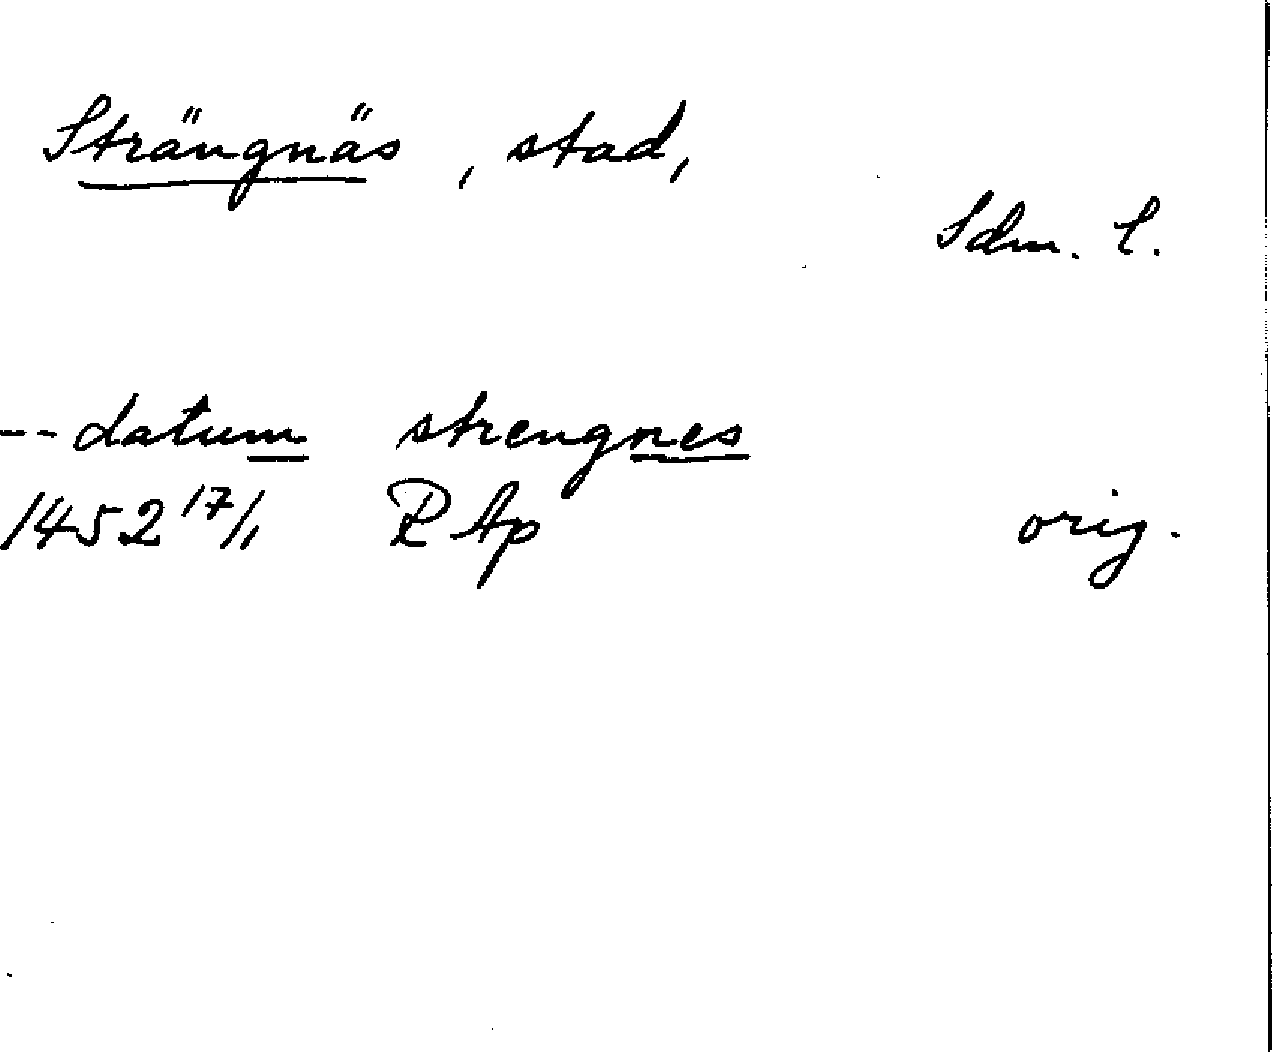 Strängnäs, stad,
Sdm. l.
-- datum strengnes
1452 17/1 RAp orig.